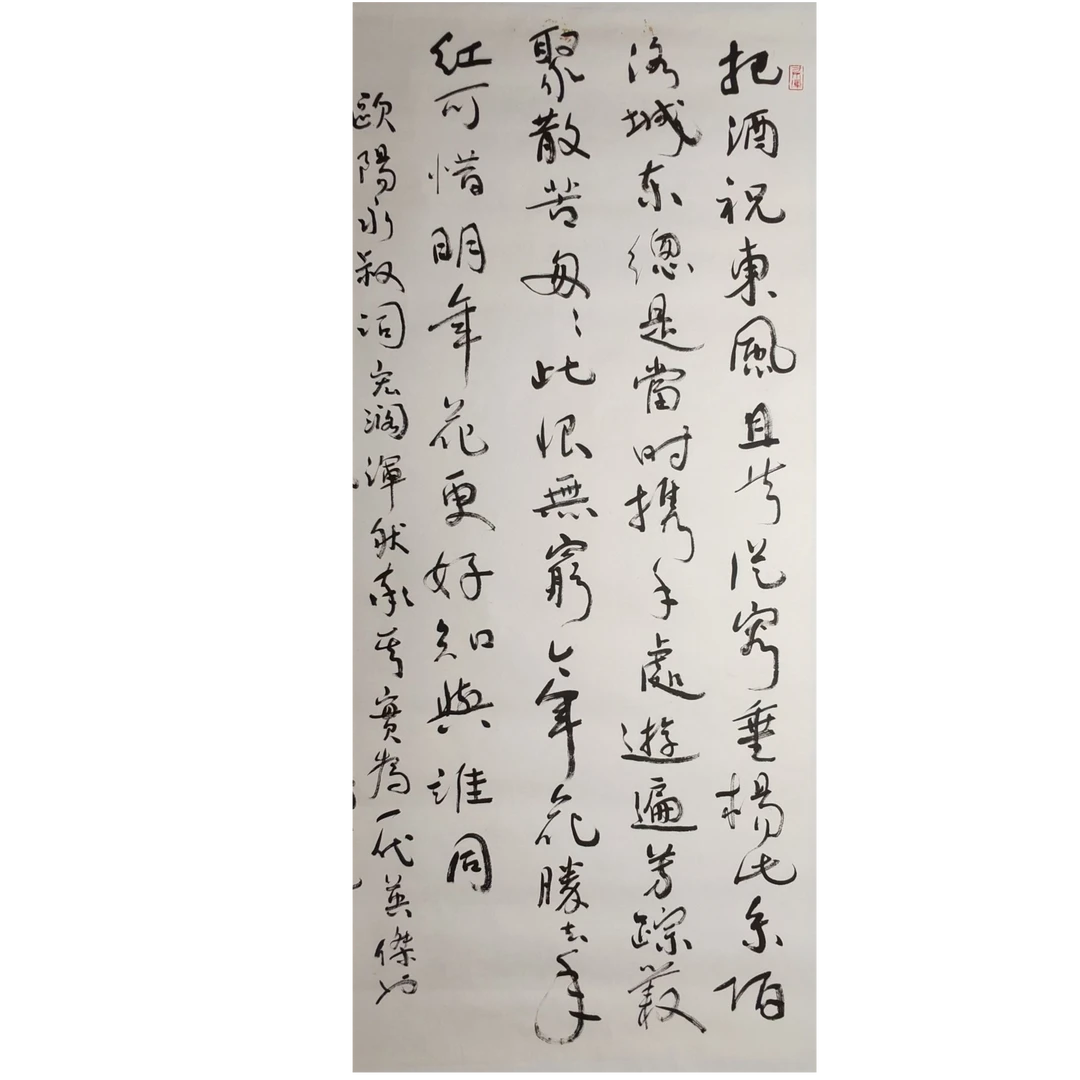 把酒祝東風且共從容垂楊紫陌
洛城東總是當時携手處遊遍芳踪叢
聚散苦匆〻此恨無窮今年花勝去年
紅可惜明年花更好知與誰同
歐陽永叔詞宏濶渾然實為一代英傑也